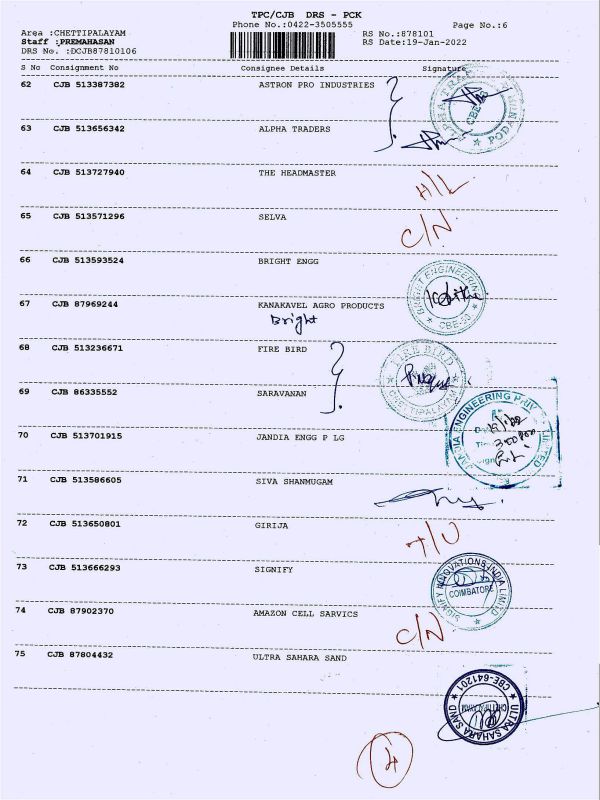 TPC/CJB DRS - PCK
Phone No.:0422-3505555 Page No.:6
Area :CHETTIPALAYAM RS No.:878101
Staff :PREMAHASAN RS Date:19-Jan-2022
DRS No. :DCJB87810106
S No Consignment No Consignee Details Signature
62 CJB 513387382 ASTRON PRO INDUSTRIES
63 CJB 513656342 ALPHA TRADERS
64 CJB 513727940 THE HEADMASTER H/L
65 CJB 513571296 SELVA C/N
66 CJB 513593524 BRIGHT ENGG
BRIGHT ENGINEERING CBE-50
67 CJB 87969244 KANAKAVEL AGRO PRODUCTS
Bright
68 CJB 513236671 FIRE BIRD
FIRE BIRD CHETTIPALAYAM
69 CJB 86335552 SARAVANAN
70 CJB 513701915 JANDIA ENGG P LG
71 CJB 513586605 SIVA SHANMUGAM
72 CJB 513650801 GIRIJA
73 CJB 513666293 SIGNIFY
SIGNIFY INNOVATIONS INDIA LIMITED COIMBATORE
74 CJB 87902370 AMAZON CELL SARVICS C/N
75 CJB 87804432 ULTRA SAHARA SAND
ULTRA SAHARA SAND CBE-641201